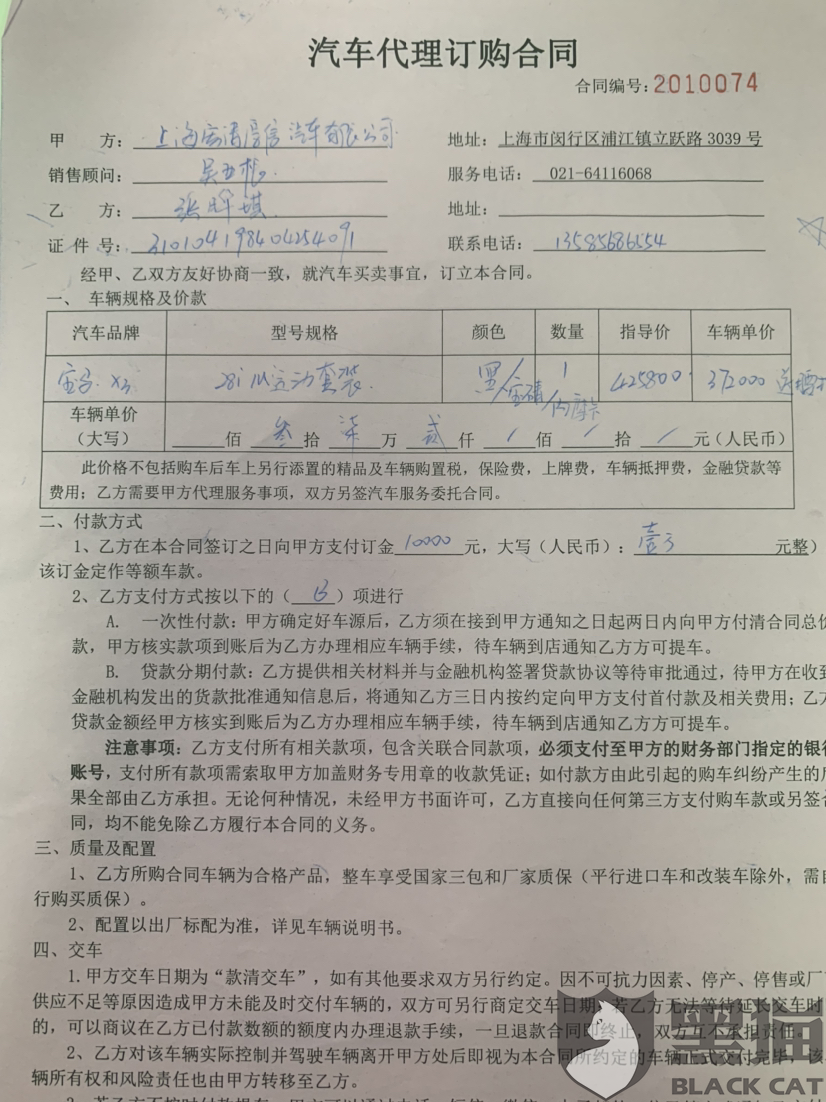 汽车代理订购合同
合同编号:2010074
甲 方: 上海宏清厚信汽车有限公司 地址: 上海市闵行区浦江镇立跃路 3039 号
销售顾问: 吴 服务电话: 021-64116068
乙 方: 张晔琪 地址:
证 件 号: 310104198404254091 联系电话: 13585686554
经甲、乙双方友好协商一致，就汽车买卖事宜，订立本合同。
一、 车辆规格及价款
汽车品牌 型号规格 颜色 数量 指导价 车辆单价
宝马 X3 28i M运动套装 黑/ 1 425800 372000 送
车辆单价
（大写） 佰 叁 拾 柒 万 贰 仟 / 佰 / 拾 / 元（人民币）
此价格不包括购车后车上另行添置的精品及车辆购置税，保险费，上牌费，车辆抵押费，金融贷款等
费用；乙方需要甲方代理服务事项，双方另签汽车服务委托合同。
二、付款方式
1、乙方在本合同签订之日向甲方支付订金 10000 元，大写（人民币）: 壹万 元整）
该订金定作等额车款。
2、乙方支付方式按以下的（ B ）项进行
A. 一次性付款：甲方确定好车源后，乙方须在接到甲方通知之日起两日内向甲方付清合同总价
款，甲方核实款项到账后为乙方办理相应车辆手续，待车辆到店通知乙方方可提车。
B. 贷款分期付款：乙方提供相关材料并与金融机构签署贷款协议等待审批通过，待甲方在收到
金融机构发出的货款批准通知信息后，将通知乙方三日内按约定向甲方支付首付款及相关费用；乙方
贷款金额经甲方核实到账后为乙方办理相应车辆手续，待车辆到店通知乙方方可提车。
注意事项：乙方支付所有相关款项，包含关联合同款项，必须支付至甲方的财务部门指定的银行
账号，支付所有款项需索取甲方加盖财务专用章的收款凭证；如付款方由此引起的购车纠纷产生的后
果全部由乙方承担。无论何种情况，未经甲方书面许可，乙方直接向任何第三方支付购车款或另签合
同，均不能免除乙方履行本合同的义务。
三、质量及配置
1、乙方所购合同车辆为合格产品，整车享受国家三包和厂家质保（平行进口车和改装车除外，需自
行购买质保）。
2、配置以出厂标配为准，详见车辆说明书。
四、交车
1.甲方交车日期为“款清交车”，如有其他要求双方另行约定。因不可抗力因素、停产、停售或厂
供应不足等原因造成甲方未能及时交付车辆的，双方可另行商定交车日期，若乙方无法等待延长交车时
的，可以商议在乙方已付款数额的额度内办理退款手续，一旦退款合同即终止，双方互不承担责任
2、乙方对该车辆实际控制并驾驶车辆离开甲方处后即视为本合同所约定的车辆正式交付完毕，该
辆所有权和风险责任也由甲方转移至乙方。
黑猫
BLACK CAT